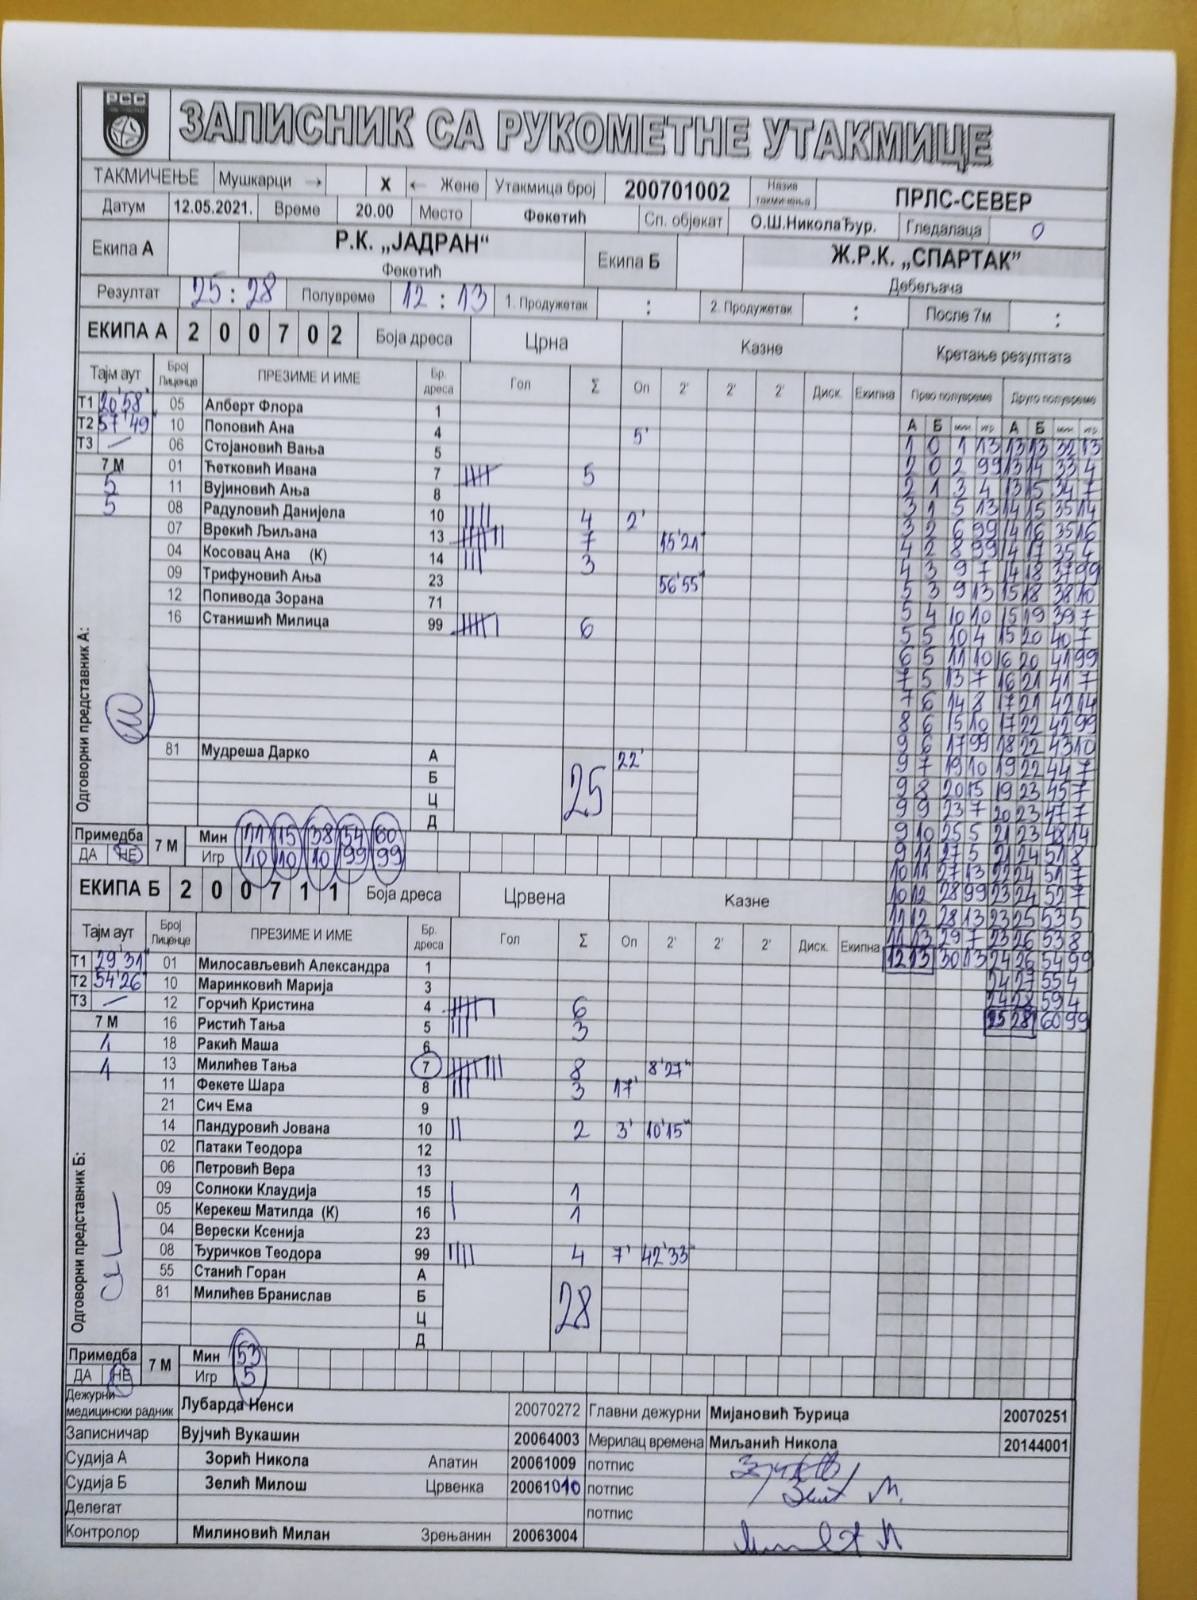 РСС
ЗАПИСНИК СА РУКОМЕТНЕ УТАКМИЦЕ
ТАКМИЧЕЊЕ Мушкарци → X ← Жене Утакмица број 200701002 Назив такмичења ПРЛС-СЕВЕР
Датум 12.05.2021. Време 20.00 Место Фекетић Сп. објекат О.Ш.НиколаЂур. Гледалаца 0
Екипа А Р.К. „ЈАДРАН“ Фекетић Екипа Б Ж.Р.К. „СПАРТАК” Дебељача
Резултат 25 : 28 Полувреме 12 : 13 1. Продужетак : 2. Продужетак : После 7м :
ЕКИПА А 2 0 0 7 0 2 Боја дреса Црна Казне Кретање резултата
Тајм аут Број Лиценце ПРЕЗИМЕ И ИМЕ Бр. дреса Гол Σ Оп 2' 2' 2' Диск. Екипна Прво полувреме Друго полувреме
А Б мин игр А Б мин игр
Т1 20'58" 05 Алберт Флора 1
Т2 57'49" 10 Поповић Ана 4 5'
Т3 — 06 Стојановић Вања 5
7 М 01 Ћетковић Ивана 7 5
5 11 Вујиновић Ања 8
5 08 Радуловић Данијела 10 4 2'
07 Врекић Љиљана 13 7 15'21"
04 Косовац Ана (К) 14 3
09 Трифуновић Ања 23 56'55"
12 Попивода Зорана 71
16 Станишић Милица 99 6
Одговорни представник А:
81 Мудреша Дарко А 22'
Б
Ц
Д
25
Примедба ДА НЕ 7 М Мин 11 15 38 54 60
Игр 10 10 10 99 99
1 0 1 13 13 13 32 13
2 0 2 99 13 14 33 4
2 1 3 4 13 15 34 7
3 1 5 13 14 15 35 14
3 2 6 99 14 16 35 16
4 2 8 99 14 17 35 4
4 3 9 7 14 18 37 99
5 3 9 13 15 18 38 10
5 4 10 10 15 19 39 7
5 5 10 4 15 20 40 7
6 5 11 10 16 20 41 99
7 5 13 7 16 21 41 7
7 6 14 8 17 21 42 14
8 6 15 10 17 22 42 99
9 6 17 99 18 22 43 10
9 7 19 10 19 22 44 7
9 8 20 15 19 23 45 7
9 9 23 7 20 23 47 7
9 10 25 5 21 23 48 14
9 11 27 5 21 24 51 8
10 11 27 13 22 24 51 7
10 12 28 99 23 24 52 7
11 12 28 13 23 25 53 5
11 13 29 7 23 26 53 8
12 13 30 13 24 26 54 99
24 27 55 4
24 28 59 4
25 28 60 99
ЕКИПА Б 2 0 0 7 1 1 Боја дреса Црвена Казне
Тајм аут Број Лиценце ПРЕЗИМЕ И ИМЕ Бр. дреса Гол Σ Оп 2' 2' 2' Диск. Екипна
Т1 29'31" 01 Милосављевић Александра 1
Т2 54'26" 10 Маринковић Марија 3
Т3 — 12 Горчић Кристина 4 6
7 М 16 Ристић Тања 5 3
1 18 Ракић Маша 6
1 13 Милићев Тања 7 8 8'27"
11 Фекете Шара 8 3 17'
21 Сич Ема 9
14 Пандуровић Јована 10 2 3' 10'15"
02 Патаки Теодора 12
06 Петровић Вера 13
09 Солноки Клаудија 15 1
05 Керекеш Матилда (К) 16 1
04 Верески Ксенија 23
08 Ђуричков Теодора 99 4 7' 42'33"
Одговорни представник Б:
55 Станић Горан А
81 Милићев Бранислав Б
Ц
Д
28
Примедба ДА НЕ 7 М Мин 53
Игр 5
Дежурни медицински радник Лубарда Ненси 20070272 Главни дежурни Мијановић Ђурица 20070251
Записничар Вујчић Вукашин 20064003 Мерилац времена Миљанић Никола 20144001
Судија А Зорић Никола Апатин 20061009 потпис
Судија Б Зелић Милош Црвенка 20061010 потпис
Делегат потпис
Контролор Милиновић Милан Зрењанин 20063004